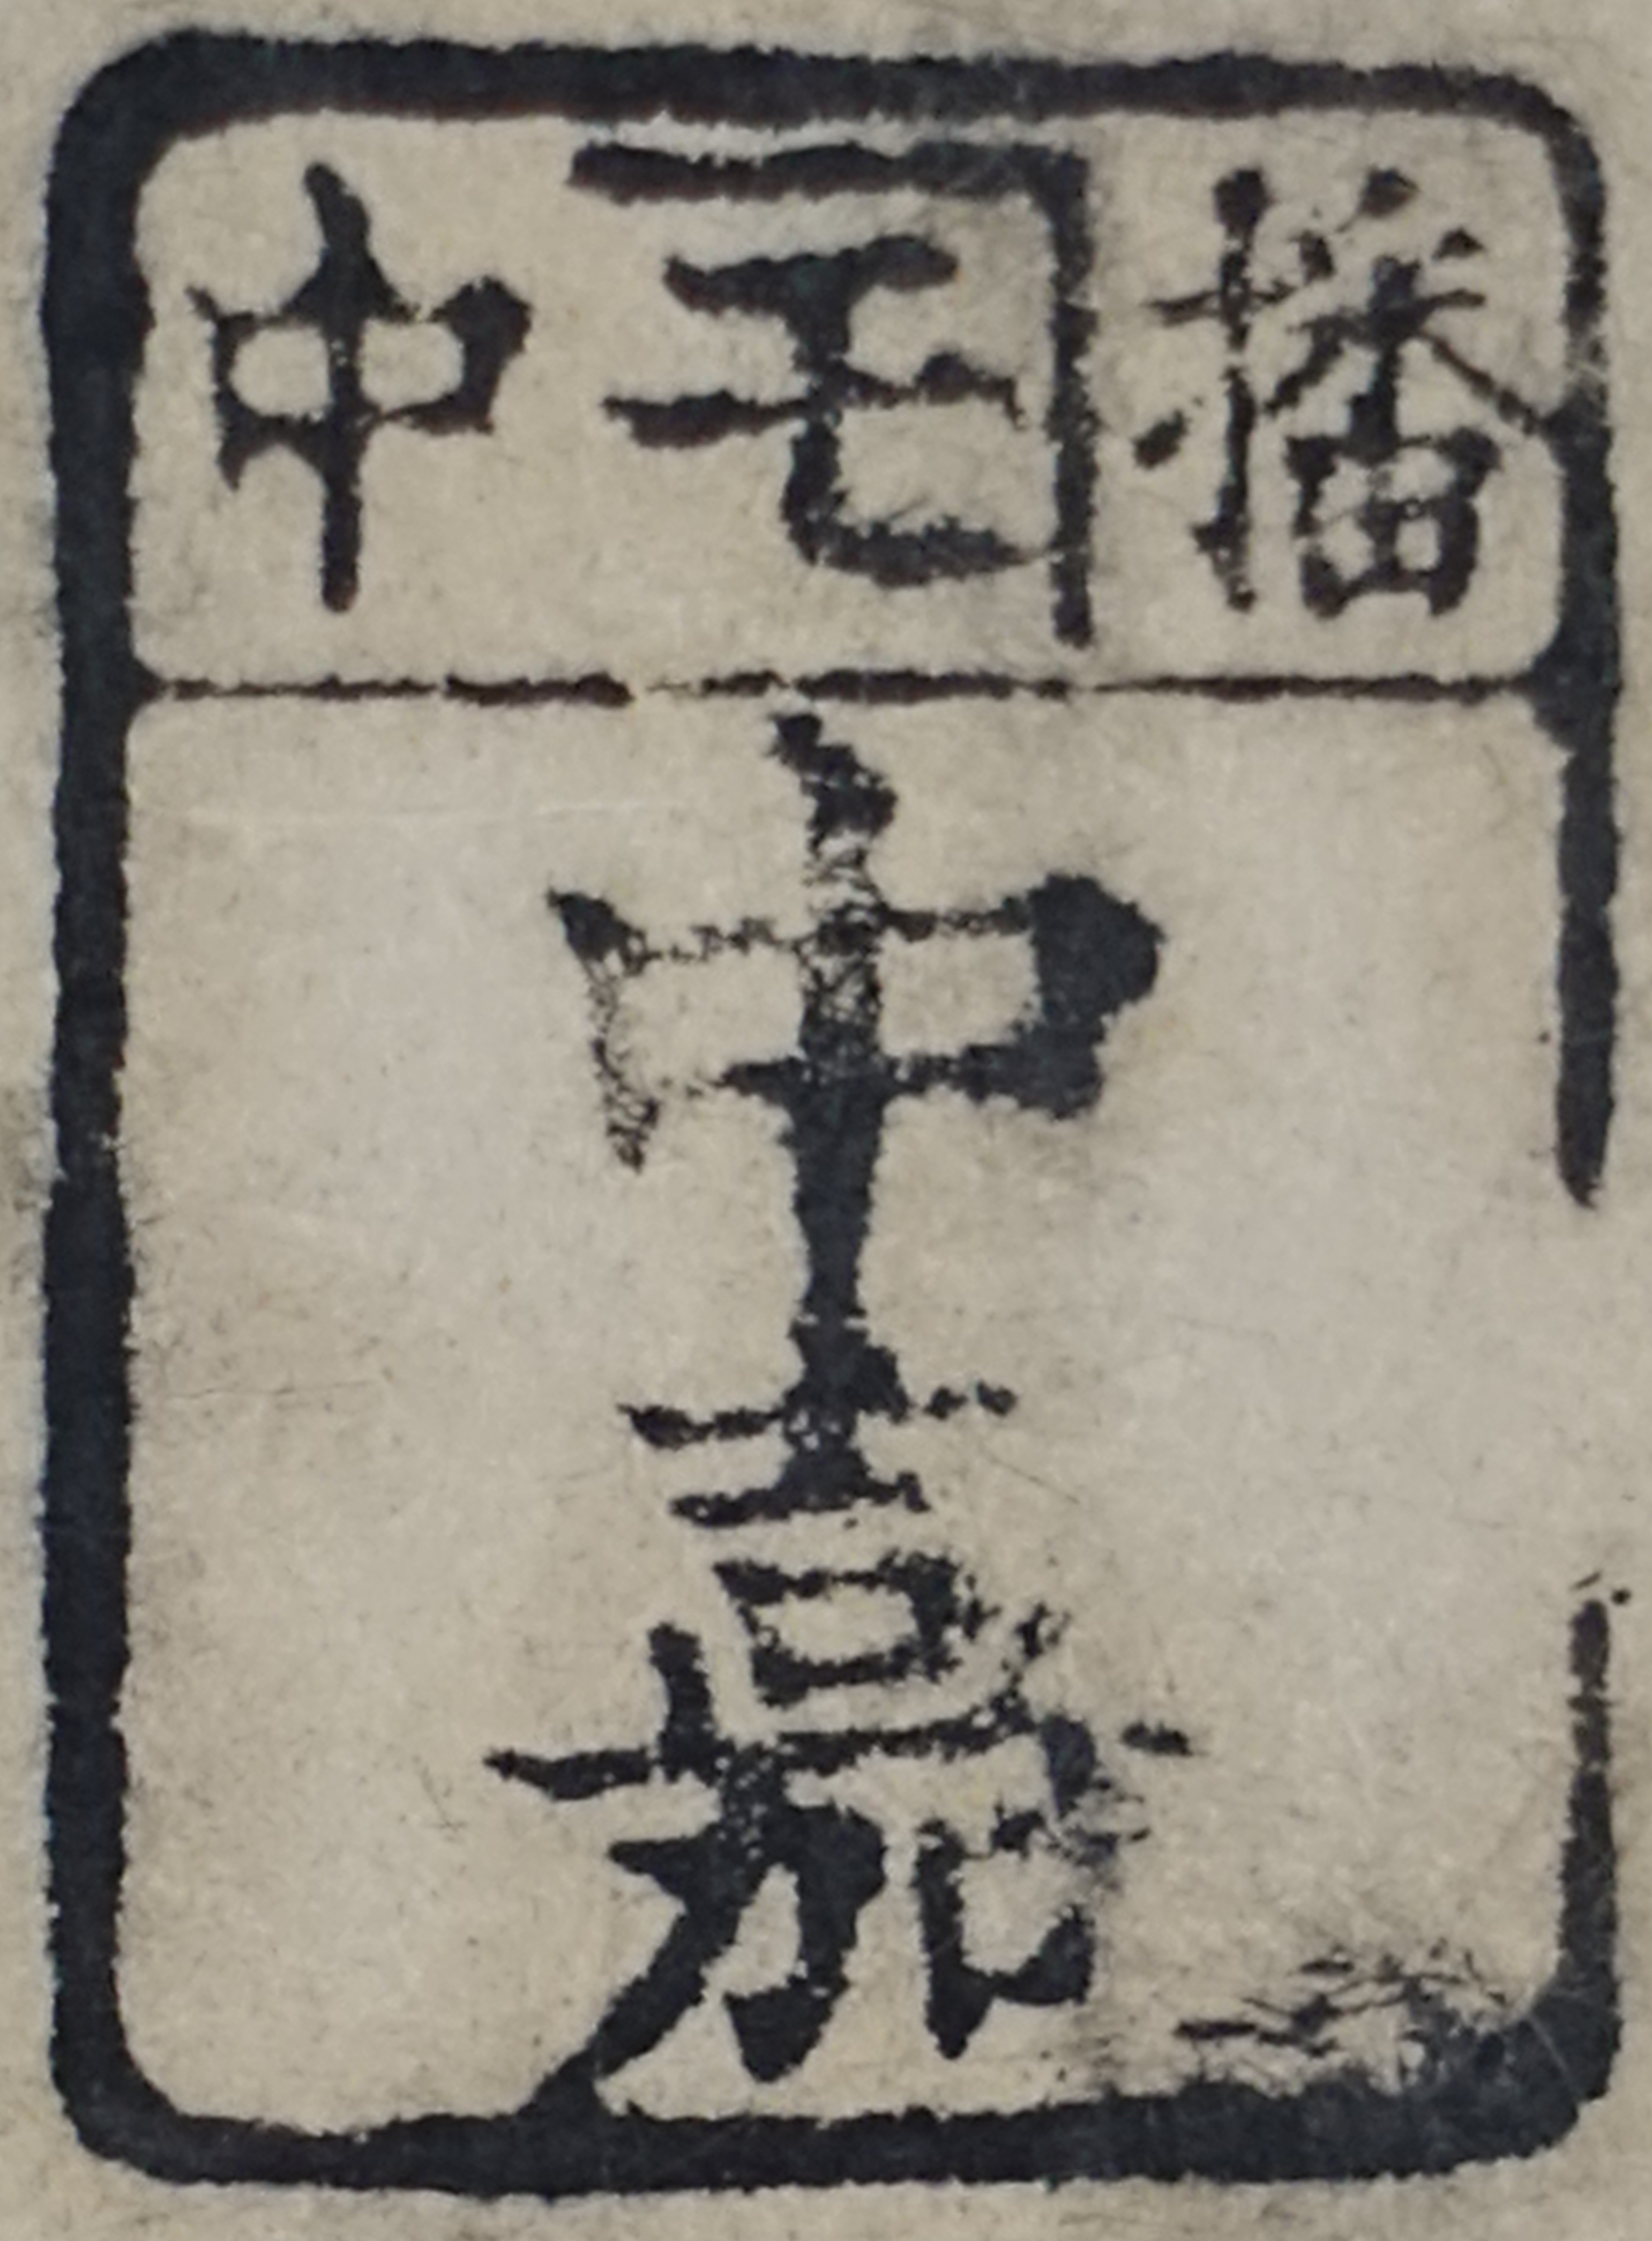 播中
中嘉